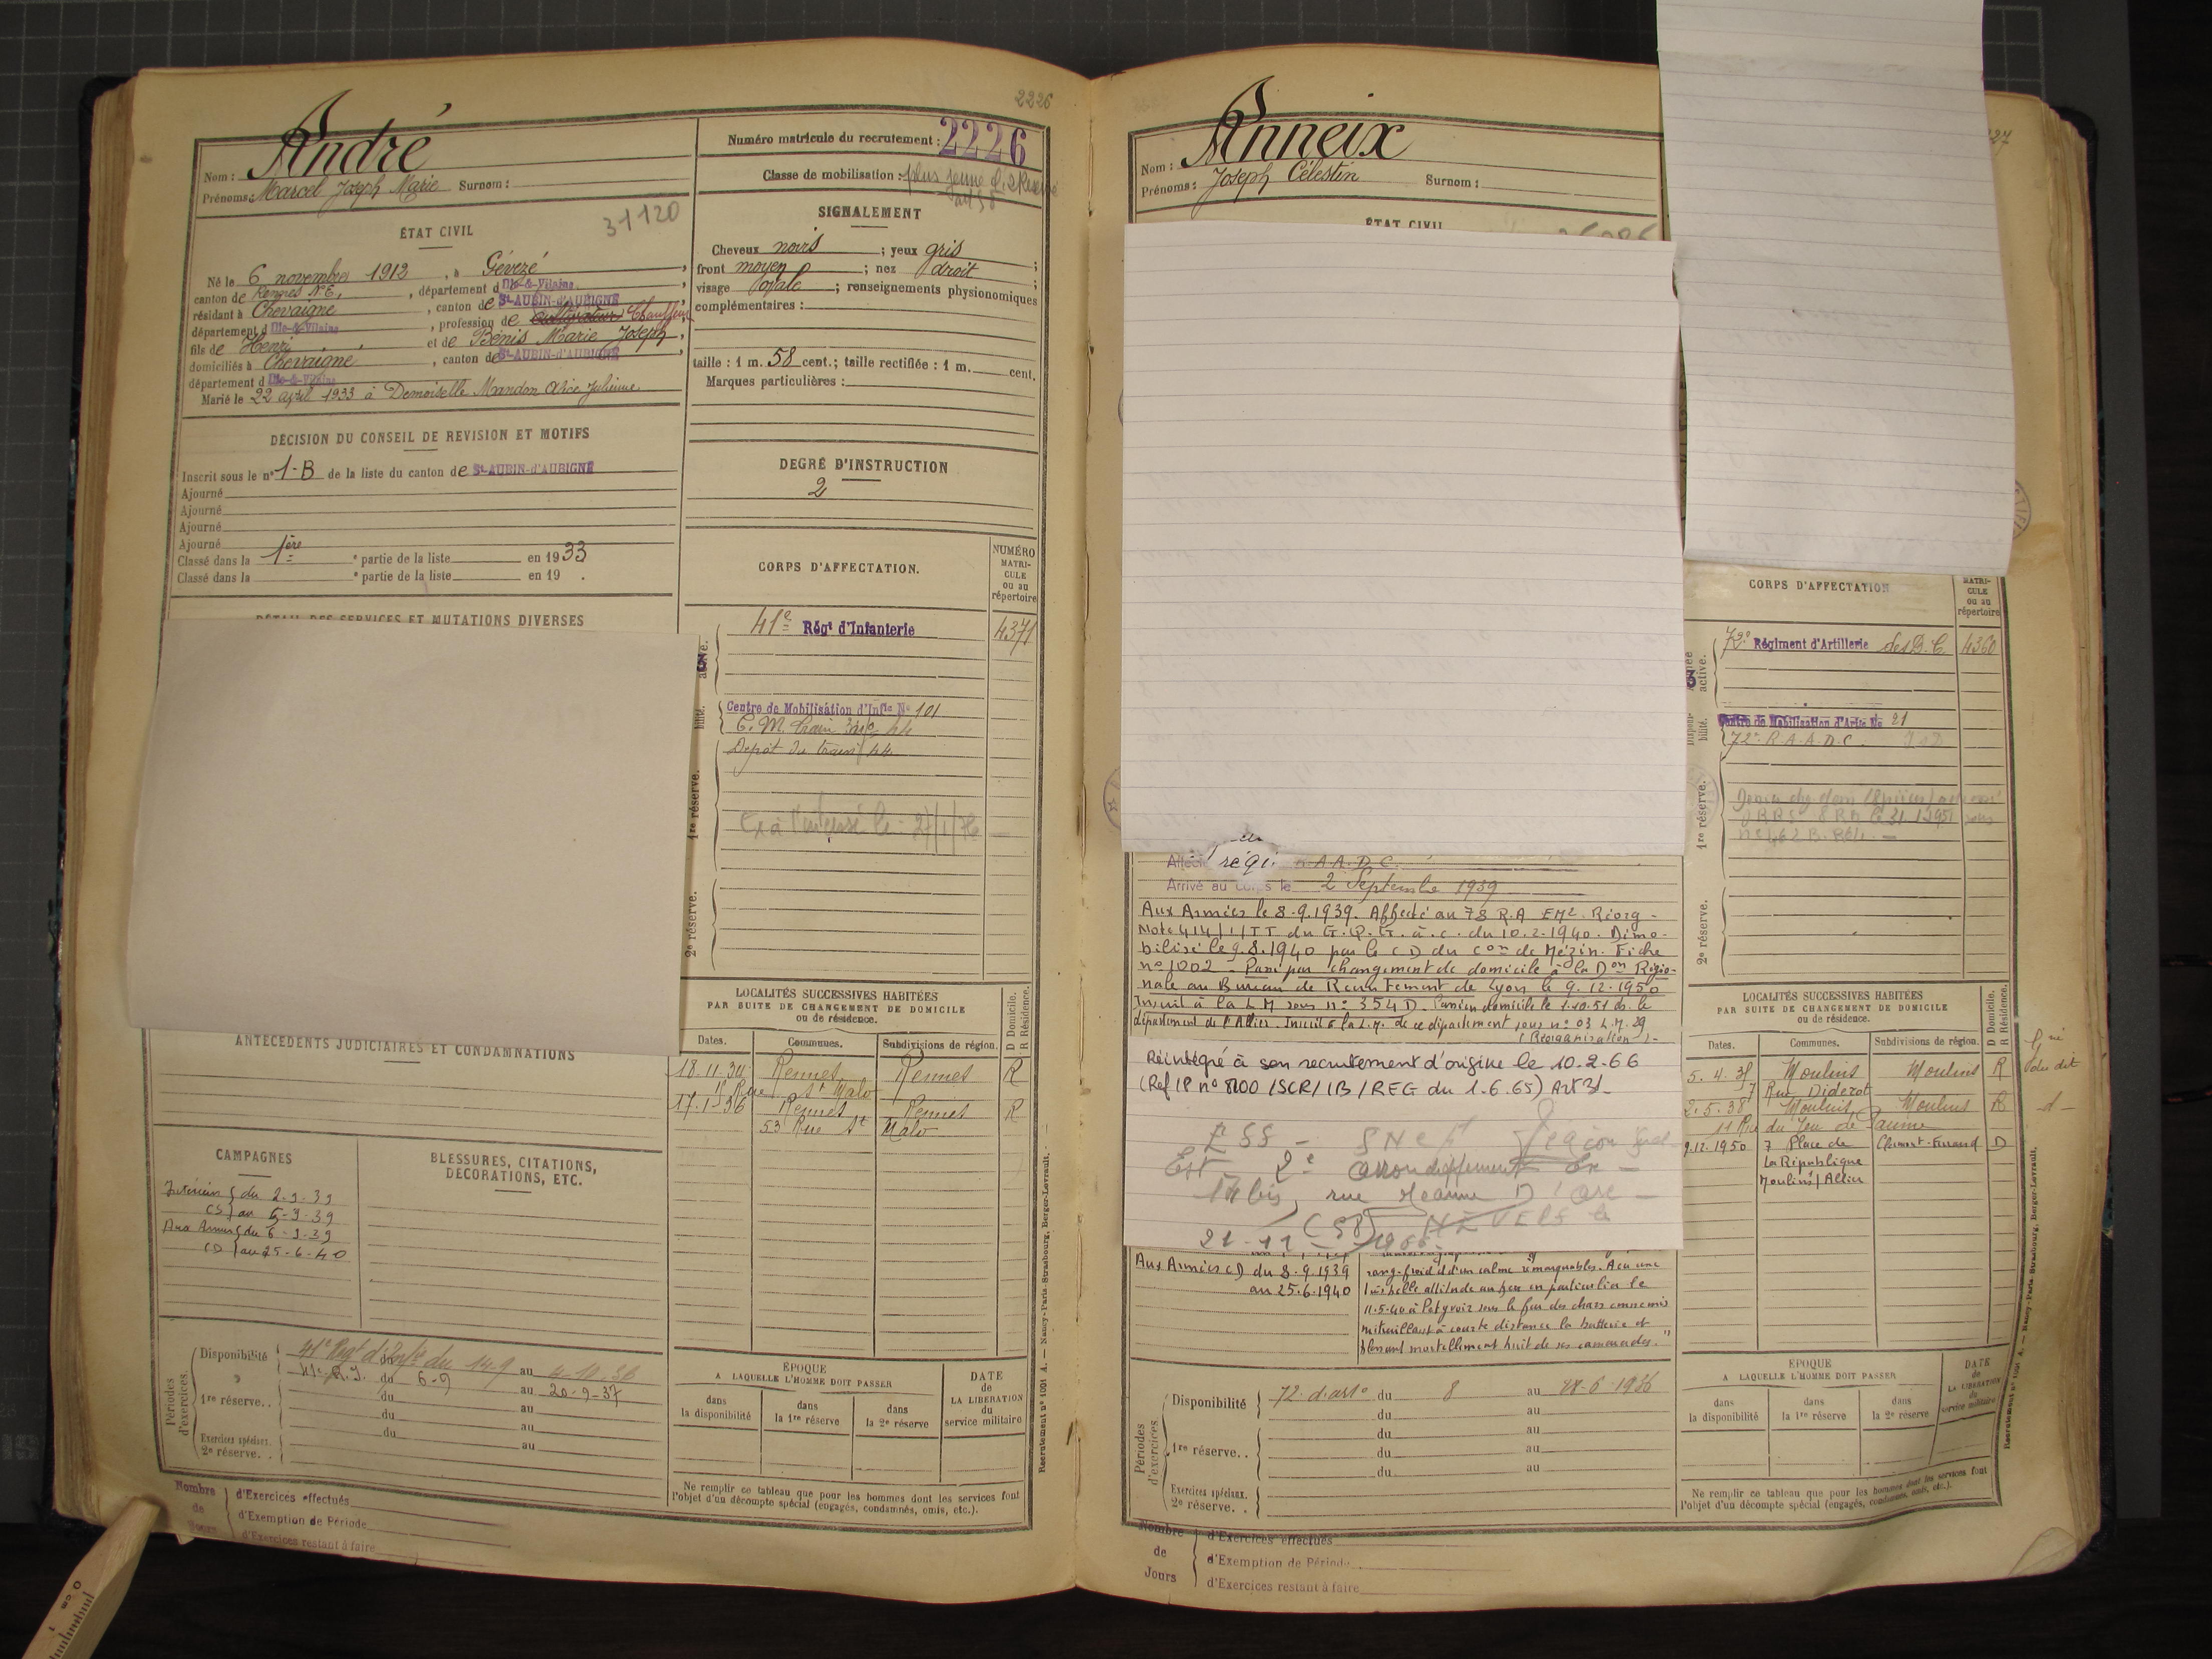 2226
André
Nom :
Prénoms : Marcel Joseph Marie Surnom :
31120
ÉTAT CIVIL
Né le 6 novembre 1912, à Gévezé,
canton de Rennes N.E., département d Ille-&-Vilaine
résidant à Chevaigné, canton de St-AUBIN-d'AUBIGNÉ
département d Ille-&-Vilaine, profession de cultivateur Chauffeur
fils de Henri et de Benis Marie Joseph,
domiciliés à Chevaigné, canton de St-AUBIN-d'AUBIGNÉ
département d Ille-&-Vilaine
Marié le 22 avril 1933 à Demoiselle Mandon Alice Julienne
DÉCISION DU CONSEIL DE REVISION ET MOTIFS
Inscrit sous le n° 1-B de la liste du canton de St-AUBIN-d'AUBIGNÉ
Ajourné
Ajourné
Ajourné
Ajourné
Classé dans la 1ère e partie de la liste en 1933
Classé dans la e partie de la liste en 19 .
DÉTAIL DES SERVICES ET MUTATIONS DIVERSES
ANTÉCÉDENTS JUDICIAIRES ET CONDAMNATIONS
CAMPAGNES
Intérieur du 2-9-39
CS) au 5-9-39
Aux Armées du 6-9-39
CD au 25-6-40
BLESSURES, CITATIONS,
DÉCORATIONS, ETC.
Périodes d'exercices.
Disponibilité 41e Regt d'Infie du 14-9 au 4-10-36
41e R.I. du 6-9 au 20-9-37
1re réserve. . du au
du au
Exercices spéciaux. du au
2e réserve. .
Nombre de Jours
d'Exercices effectués
d'Exemption de Période
d'Exercices restant à faire
Numéro matricule du recrutement : 2226
Classe de mobilisation : plus jeune cl. 2 Réserve
SIGNALEMENT
Cheveux noirs ; yeux gris ;
front moyen ; nez droit ;
visage ovale ; renseignements physionomiques
complémentaires :
taille : 1 m. 58 cent.; taille rectifiée : 1 m. cent.
Marques particulières :
DEGRÉ D'INSTRUCTION
2
CORPS D'AFFECTATION.
NUMÉRO MATRI-CULE ou au répertoire
41e Régt d'Infanterie 4371
Centre de Mobilisation d'Infie No 101
C. M. Train 44
Dépôt du train 44
1re réserve.
Ex à l'intéressé le 27/1/76
2e réserve.
LOCALITÉS SUCCESSIVES HABITÉES
PAR SUITE DE CHANGEMENT DE DOMICILE
ou de résidence.
D Domicile. R Résidence.
Dates. Communes. Subdivisions de région.
18.11.34 Rennes Rennes R
Rue St Malo
17-1-36 Rennes Rennes R
53 Rue St Malo
ÉPOQUE
A LAQUELLE L'HOMME DOIT PASSER
dans la disponibilité
dans la 1re réserve
dans la 2e réserve
DATE de LA LIBÉRATION du service militaire
Ne remplir ce tableau que pour les hommes dont les services font
l'objet d'un décompte spécial (engagés, condamnés, omis, etc.).
Recrutement n° 1001 A. — Nancy-Paris-Strasbourg, Berger-Levrault.
Anneix
Nom :
Prénoms : Joseph Célestin Surnom :
ÉTAT CIVIL
régi. R.A.A.D.C.
Arrivé au corps le 2 Septembre 1939
Aux Armées le 8.9.1939. Affecté au 78 R.A EMt. Réorg-
Note 414/1/TT du G.Q.G. à.c. du 10.2.1940. Démo-
bilisé le 9.8.1940 par le CD du Con de Mézin. Fiche
n° 1002 - Passé par changement de domicile à la Don Régio-
nale au Bureau de Recrutement de Lyon le 9.12.1950
Inscrit à la L M sous n° 354 D. domicile le 1.10.51 ds le
département de l'Allier. Inscrit à la L.M. de ce département sous n° 03 L.M. 29
(Réorganisation)-
Réintégré à son recrutement d'origine le 10.2.66
(Ref IP n° 8100 /SCR/1B/REG du 1.6.65) Art 31-
ESS - SNCF Région Sud
Est 2e arrondissement Ex -
14 bis, rue Jeanne D'arc -
(58) NEVERS le
21-11-1966-
Aux Armées CD du 8.9.1939
au 25.6.1940
sang-froid et d'un calme remarquables. A eu une
très belle attitude au feu en particulier le
11.5.40 à sous le feu des chars ennemis
mitraillant à courte distance la batterie et
blessant mortellement huit de ses camarades."
Périodes d'exercices.
Disponibilité 72e d'artie du 8 au 28-6-1936
du au
1re réserve. . du au
du au
du au
Exercices spéciaux.
2e réserve. .
Nombre de Jours
d'Exercices effectués
d'Exemption de Période
d'Exercices restant à faire
CORPS D'AFFECTATION
MATRI-CULE ou au répertoire
72e Régiment d'Artillerie des D.C. 4360
Centre de Mobilisation d'Artie No 21
72e R.A.A.D.C.
1re réserve.
2e réserve.
LOCALITÉS SUCCESSIVES HABITÉES
PAR SUITE DE CHANGEMENT DE DOMICILE
ou de résidence.
D Domicile. R Résidence.
Dates. Communes. Subdivisions de région.
5.4.37 Moulins Moulins R
7 Rue Diderot
2.5.38 Moulins Moulins R
11 Rue du Jeu de Paume
9.12.1950 7 Place de Clermont-Ferrand D
La République
Moulins/Allier
ÉPOQUE
A LAQUELLE L'HOMME DOIT PASSER
dans la disponibilité
dans la 1re réserve
dans la 2e réserve
DATE de LA LIBÉRATION du service militaire
Ne remplir ce tableau que pour les hommes dont les services font
l'objet d'un décompte spécial (engagés, condamnés, omis, etc.).
Recrutement n° 1001 A. — Nancy-Paris-Strasbourg, Berger-Levrault.